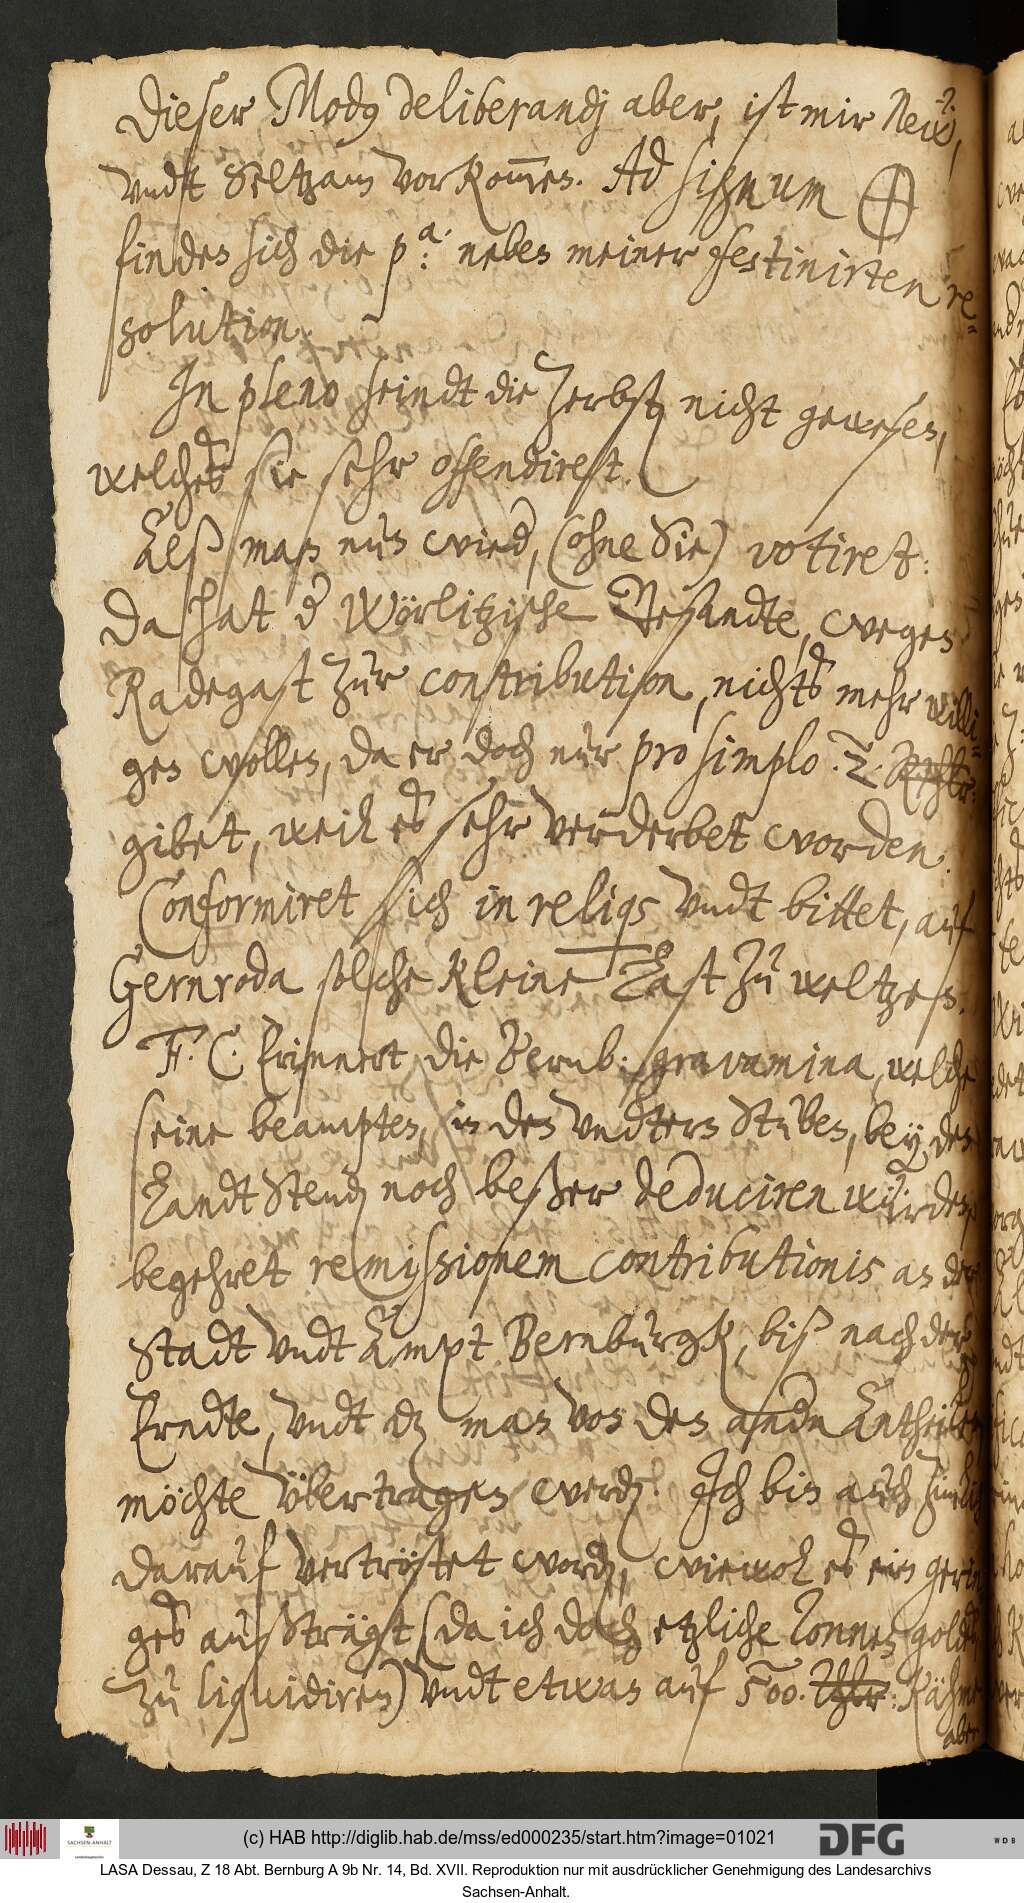 Dieser Modus deliberandj aber, ist mir Neu,
vndt Seltzam vorkommen. Ad signum ⊕
finden sich die p.ᵃ: neben meiner festinirten re-
solution.
In pleno seindt die Zerbst: nicht gewesen,
welches sie sehr offendiret.
Alß man nun wied, (ohne Sie) votiret:
Da hat d Wörlitzische Gesandte, wegen
Radegast zur contribution, nichts mehr willi-
gen wollen, da er doch nur pro simplo .2. Rthlr:
gibet, weil es sehr verderbet worden.
Conformiret sich in reliqs vndt bittet, auf
Gernroda solche kleine Last zu weltzen.
F. C. Erinnert die Bernb: gravamina, welche
seine beampten, in den vndtern Stuben, bey den
Landt Stend noch beßer deduciren würden,
begehret remissionem contributionis an der
Stadt vndt Ampt Bernburgk, biß nach der
Erndte, vndt dz man von den andn Antheilen
möchte vbertragen werd. Ich bin auch zimlich
darauf vertröstet word, wiewol es ein gerin
ges außträgt (da ich doch etzliche Tonnen goldes
zu liquidiren) vndt etwan auf 500. Thlr: kähme
aber
(c) HAB http://diglib.hab.de/mss/ed000235/start.htm?image=01021
SACHSEN-ANHALT
DFG
WDB
LASA Dessau, Z 18 Abt. Bernburg A 9b Nr. 14, Bd. XVII. Reproduktion nur mit ausdrücklicher Genehmigung des Landesarchivs
Sachsen-Anhalt.